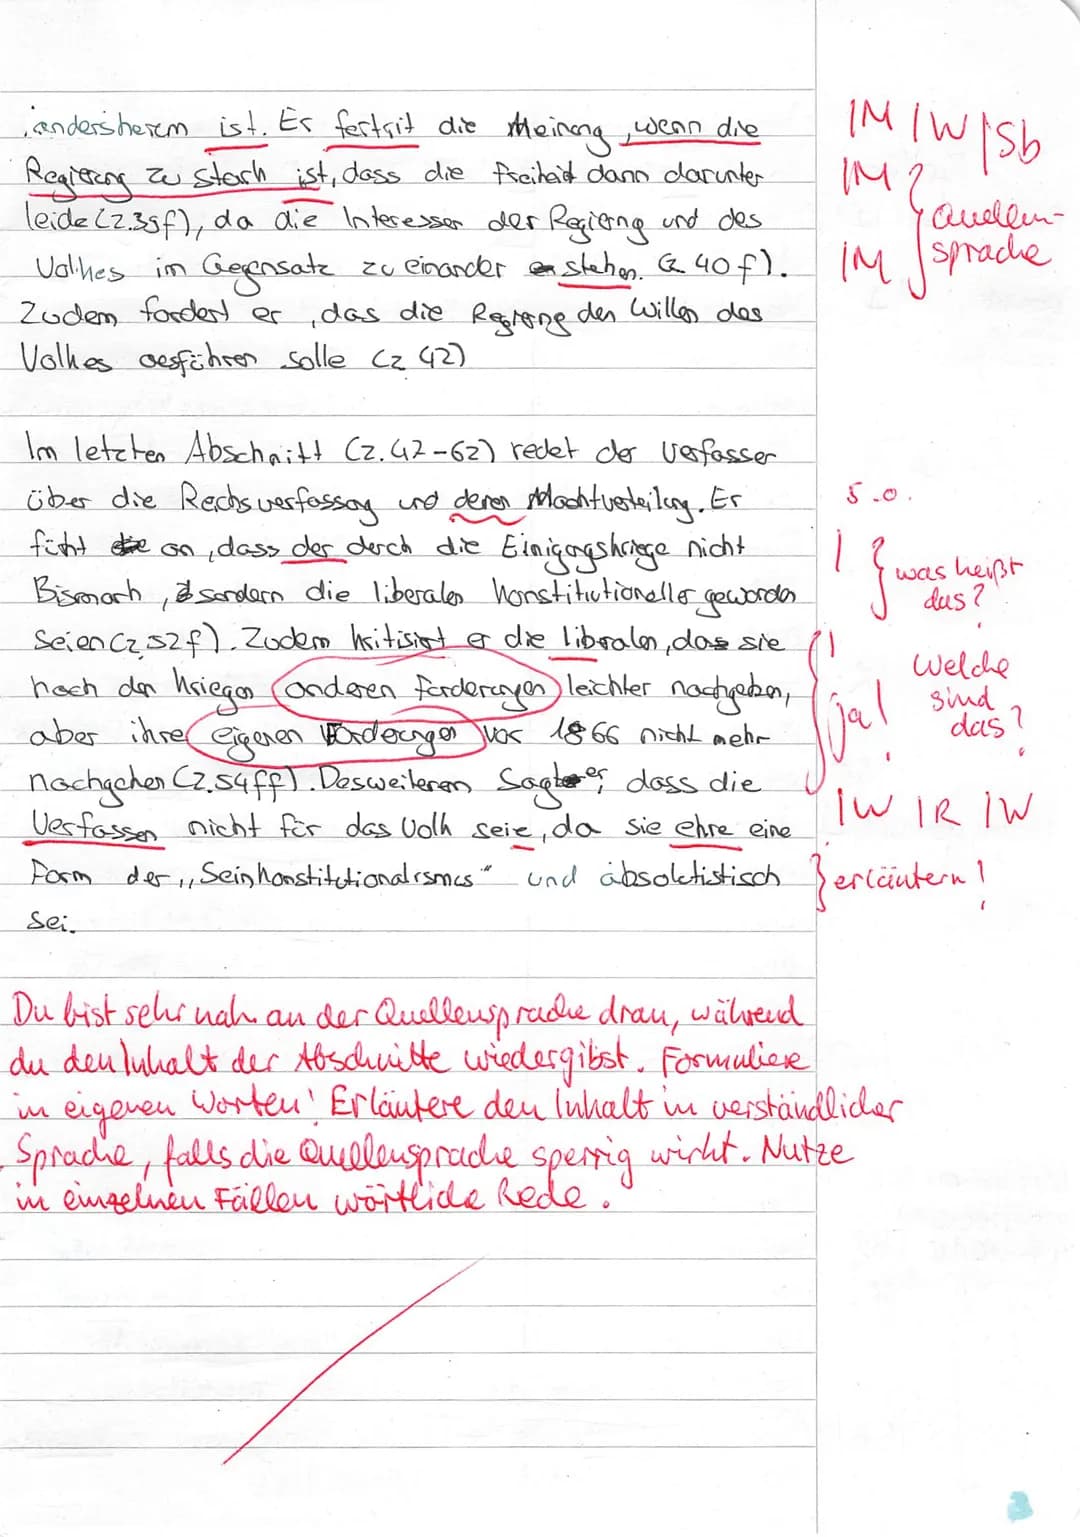 andersherem ist. Er fertrit die Meinong, wenn die IM IW ISb
Regierung zu stark ist, dass die Freiheid dann darunter IM
leide (Z.39f), da die Interessen der Regierng und des Quellen-
Volkes im Gegensatz zu einander stehen. (Z. 40f). IM sprache
Zudem fordert er, das die Regierung den Willen des
Volkes ausführen solle (Z 42)
Im letzten Abschnitt (Z.42-62) redet der Verfasser
über die Reichsverfassung und deren Machtverteilung. Er s.o.
führt an, dass der derch die Einigungskriege nicht I was heißt
Bismark, sondern die liberalen konstitutioneller geworden das?
seien (Z, 52f). Zudem kritisiert er die liberalen, das sie I Welche
nach den Kriegen anderen forderungen leichter nachgeben, ja! sind
aber ihre eigenen Forderungen vor 1866 nicht mehr das?
nachgehen (Z.54ff). Desweiteren sagt er, dass die
Verfassen nicht für das Volk seie, da sie ehre eine IW IR IW
Form der „Seinkonstitutionalismus" und absolutistisch erläutern!
sei.
Du bist sehr nah an der Quellensprache dran, während
du den Inhalt der Abschnitte wiedergibst. Formuliere
in eigenen Worten! Erläutere den Inhalt in verständlicher
Sprache, falls die Quellensprache sperrig wirkt. Nutze
in einzelnen Fällen wörtliche Rede.
3